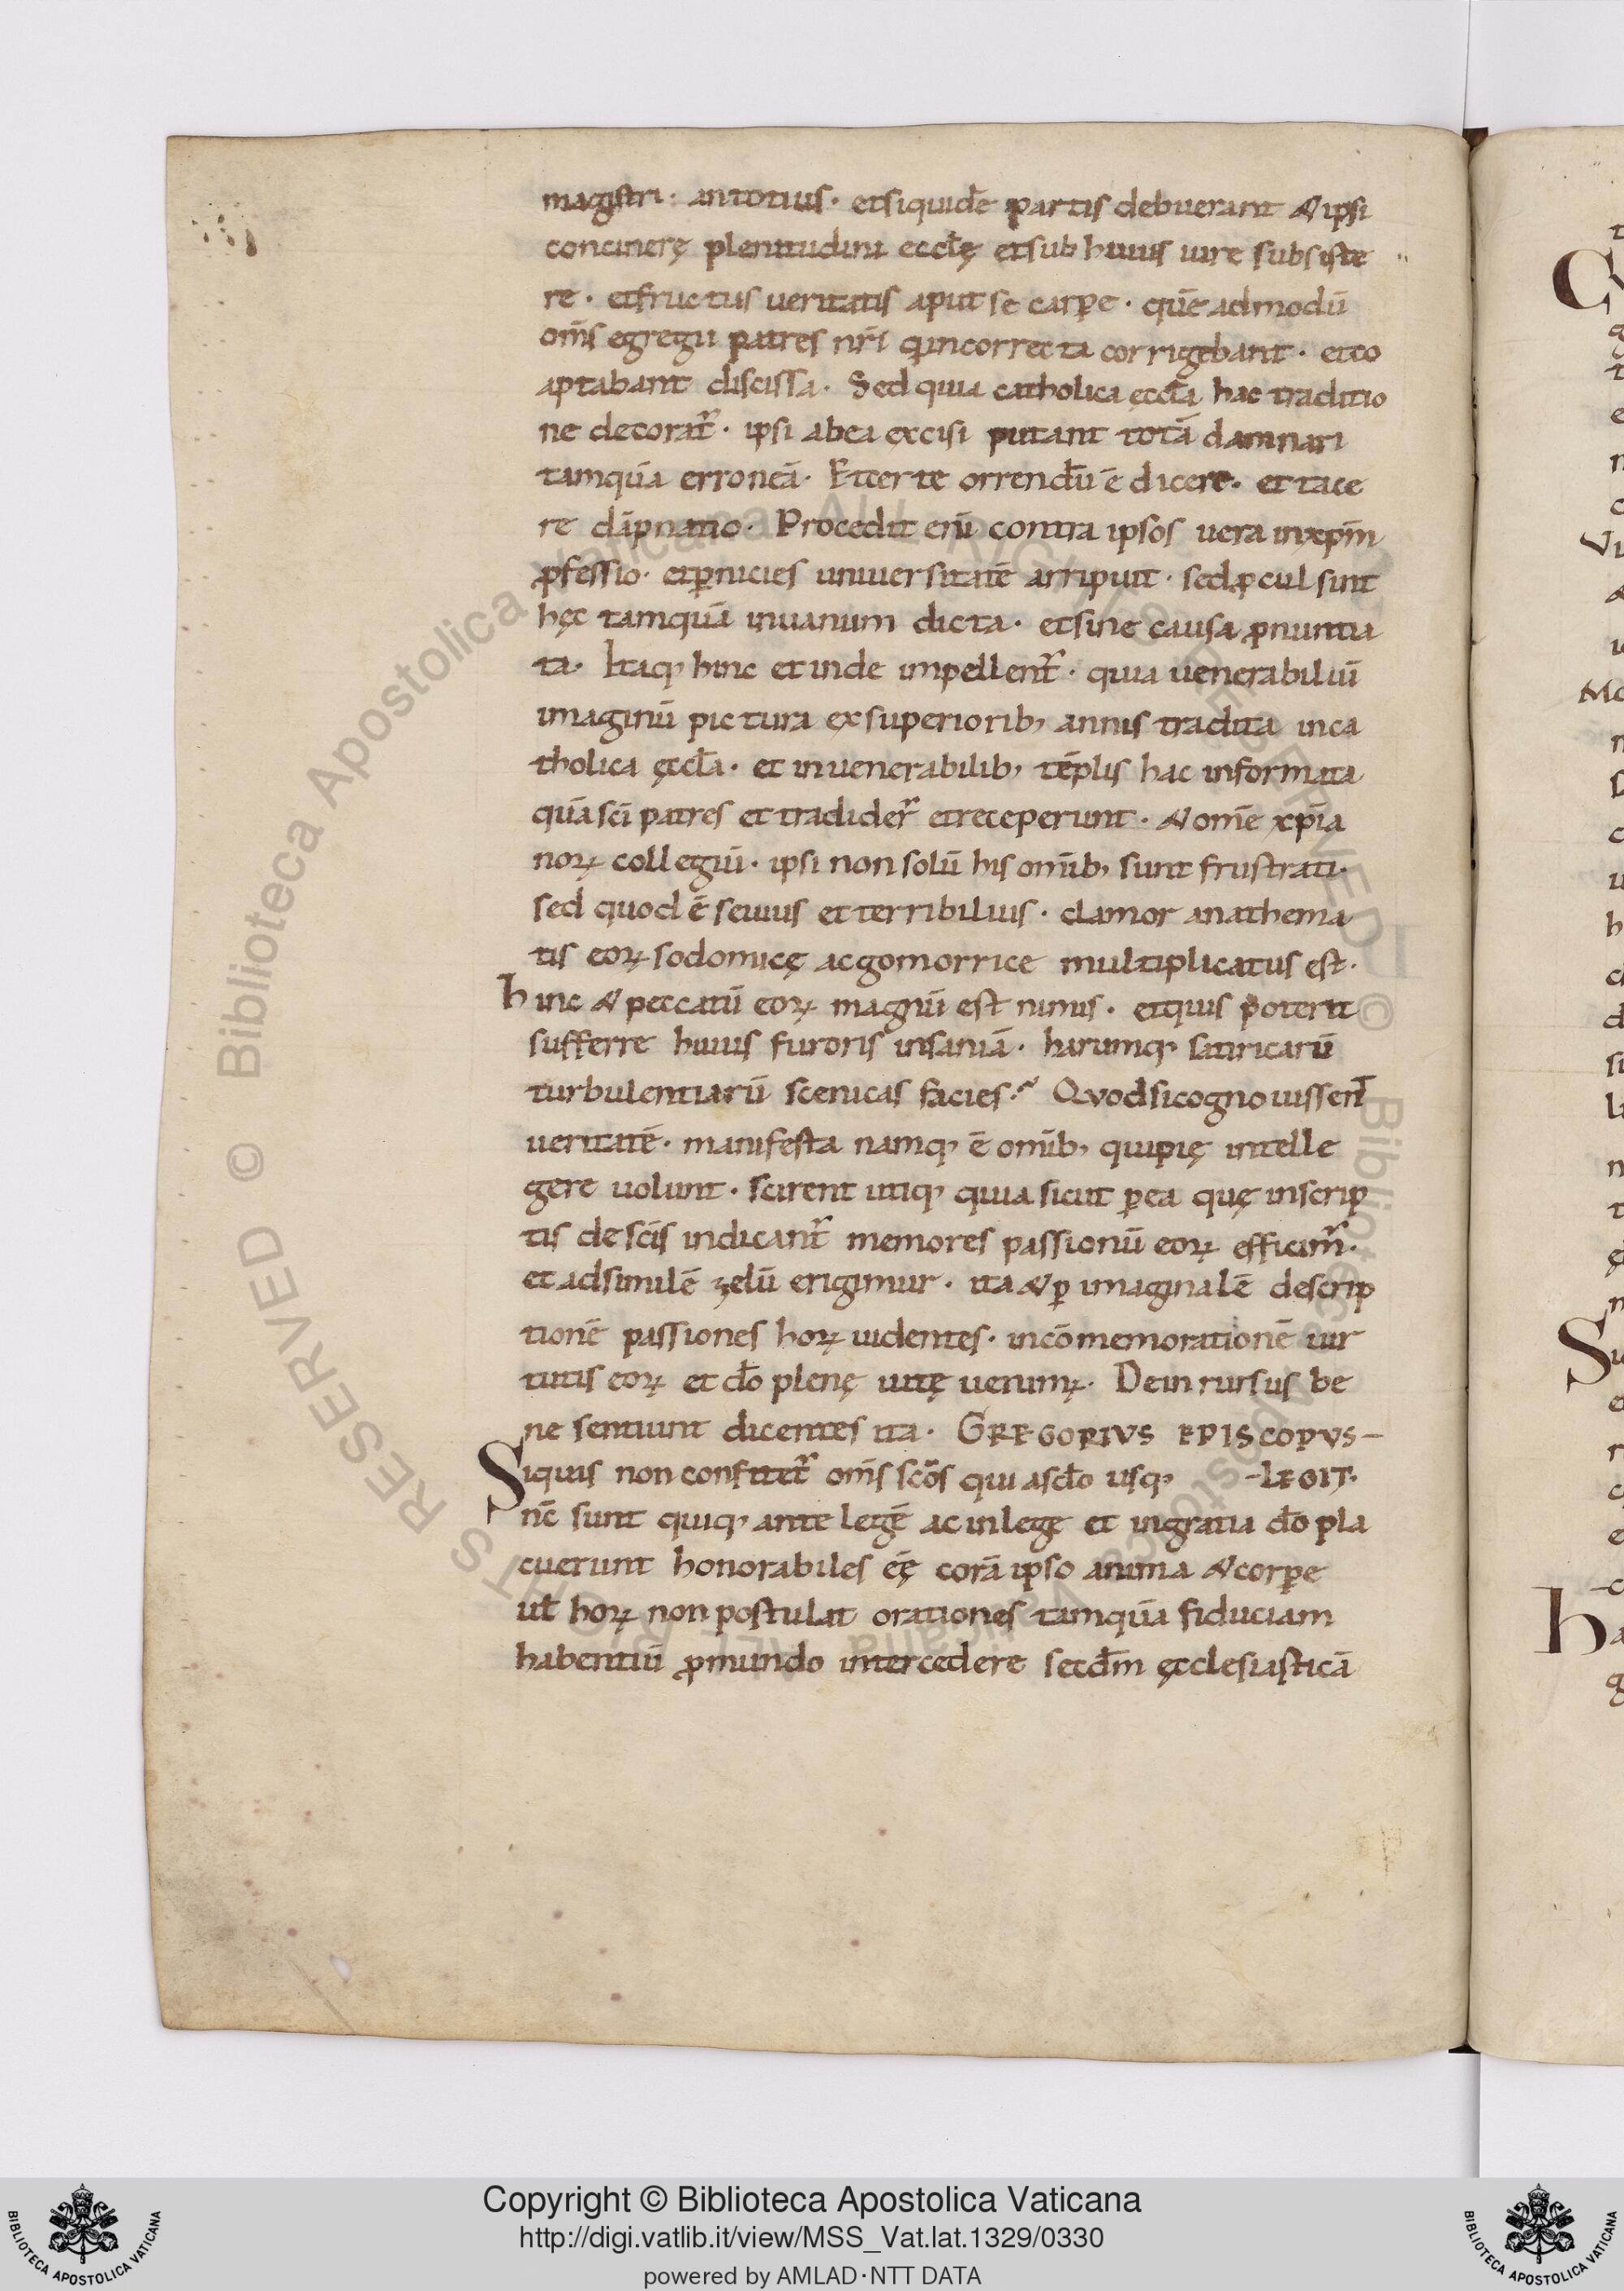 magistri · an totius · et siquidē partis debuerant & ipsi
concinerę plenitudini eccłę et sub huius iure subsiste
re · et fructus ueritatis aput se carꝑe · quē admodū
om̄s egregii patres nr̄i q̨ incorrecta corrigebant · et co
aptabant discissa · Sed quia catholica ęccła hac traditio
ne decorat᷑ · ipsi ab ea excisi putant totā damnari
tamquā erroneā · Et certe orrendū ē dicere · et tace
re dāpnatio · Procedit enī contra ipsos uera in xp̄m
ꝓfessio · et ꝑnicies uniuersitatē arripuit · sed ꝓcul sint
hęc tamquā in uanum dicta · et sine causa ꝓnuntia
ta · Itaq; hinc et inde impellent᷑ · quia uenerabiliū
imaginū pictura ex superiorib; annis tradita in ca
tholica ęccła · et in uenerabilib; tēplis hac informata
quā sc̄i patres et tradider᷑ et receperunt · & om̄e xp̄ia
noꝝ collegiū · ipsi non solū his om̄ib; sunt frustrati ·
sed quod ē seuius et terribilius · clamor anathema
tis eoꝝ sodomicę ac gomorrice multiplicatus est ·
Hinc & peccatū eoꝝ magnū est nimis · et quis poterit
sufferre huius furoris insaniā · harumq; satiricarū
turbulentiarū scenicas facies ·? Quod si cognouissent
ueritatē · manifesta namq; ē om̄ib; qui pię intelle
gere uolunt · scirent utiq; quia sicut ꝑ ea quę in scrip
tis de sc̄is indicant᷑ memores passionū eoꝝ efficim᷑ ·
et ad similē zelū erigimur · ita & ꝑ imaginalē descrip
tionē passiones hoꝝ uidentes · in cōmemorationē uir
tutis eoꝝ et do̅ plenę uitę uenimꝰ · Dein rursus be
ne sentiunt dicentes ita · GREGORIVS EPISCOPVS –
Siquis non confitet᷑ om̄s sc̄os qui a sc̄lo usq; – LEGIT ·
nc̄ sunt quiq; ante legē ac in lege et in gratia do̅ pla
cuerunt honorabiles eę̄ corā ipso anima & corꝑe
uł hoꝝ non postulat orationes tamquā fiduciam
habentiū ꝓ mundo intercedere scd̄m ęcclesiasticā
Copyright © Biblioteca Apostolica Vaticana
http://digi.vatlib.it/view/MSS_Vat.lat.1329/0330
powered by AMLAD·NTT DATA